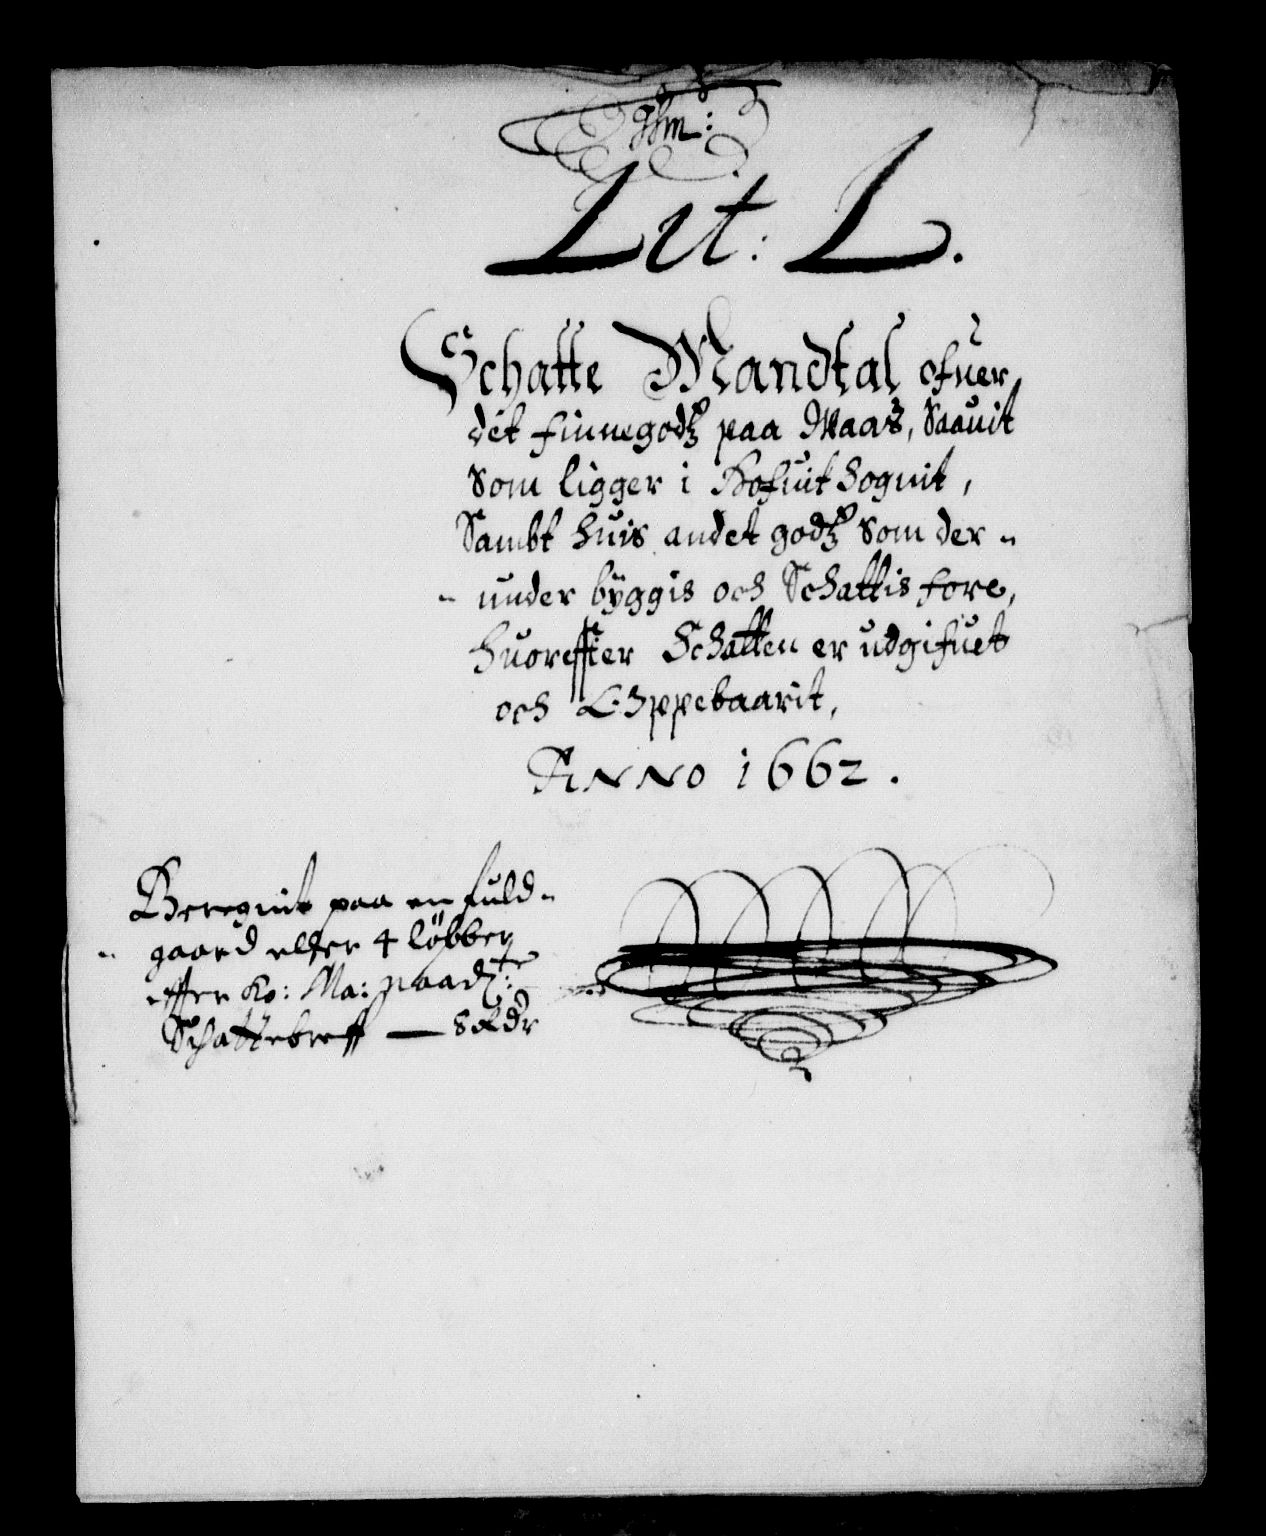 Lit: L.
Schatte Mandtal ofuer
det finnegodz paa Maas, Saauit
Som ligger i Hofuit Sognit,
Sambt huis andet godz Som der -
- under byggis och Schattis fore,
huoreffter Schatten er udgifuet
och Oppebaarit,
Anno 1662.
Beregnit paa en fuld-
- gaard eller 4 löbber
effter Ko: Ma: paad:te
Schattebreff — 8 Rdr